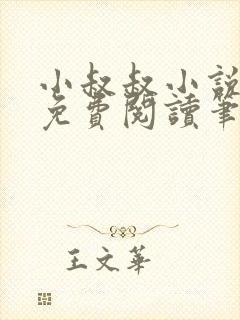 小叔叔小說
免費閱讀筆
王文華